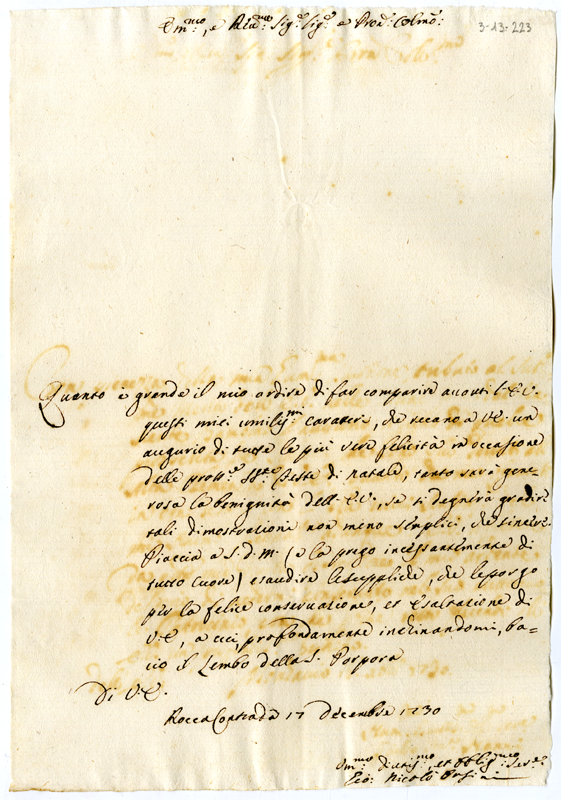 Em.mo, e Reu.mo Sig.r Sig.r e Pron. Colmo:
3-13-223
Quanto è grande il mio ordire di far comparire auanti l'E.V.
questi miei umiliss.mi caratteri, che recano a V.E. un
augurio di tutte le più vere felicità in occasione
delle pross.e SS.te feste di natale, tanto sarà gene-
rosa la benignità dell'E.V., se si degnerà gradire
tali dimostrazioni non meno semplici, che sincere.
Piaccia a S.D.M. (e la prego incessantemente di
tutto cuore) esaudire le suppliche, che le porgo
per la felice conseruazione, et esaltazione di
V.E., a cui, profondamente inchinandomi, ba=
cio il Lembo della S. Porpora
Di V.E.
RoccaContrada 17 decembre 1730
Vm.mo diuotis.mo, et obblig.mo Ser.e
Gio: Nicolò